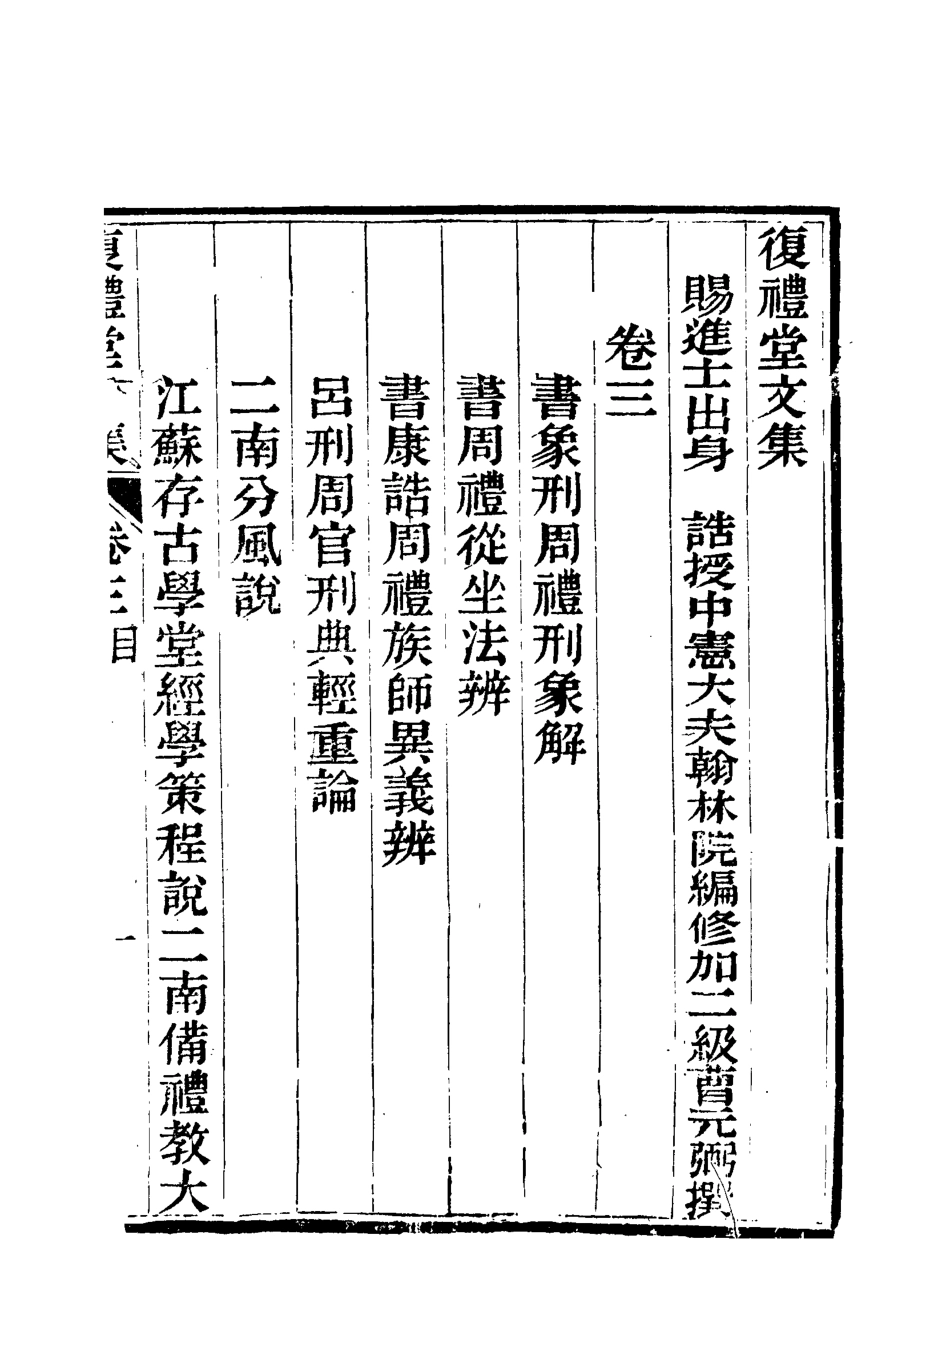 復禮堂文集
賜進士出身　誥授中憲大夫翰林院編修加二級曹元弼撰
卷三
書象刑周禮刑象解
書周禮從坐法辨
書康誥周禮族師異義辨
呂刑周官刑典輕重論
二南分風說
江蘇存古學堂經學策程說二南備禮教大
復禮堂文集　卷三目　一